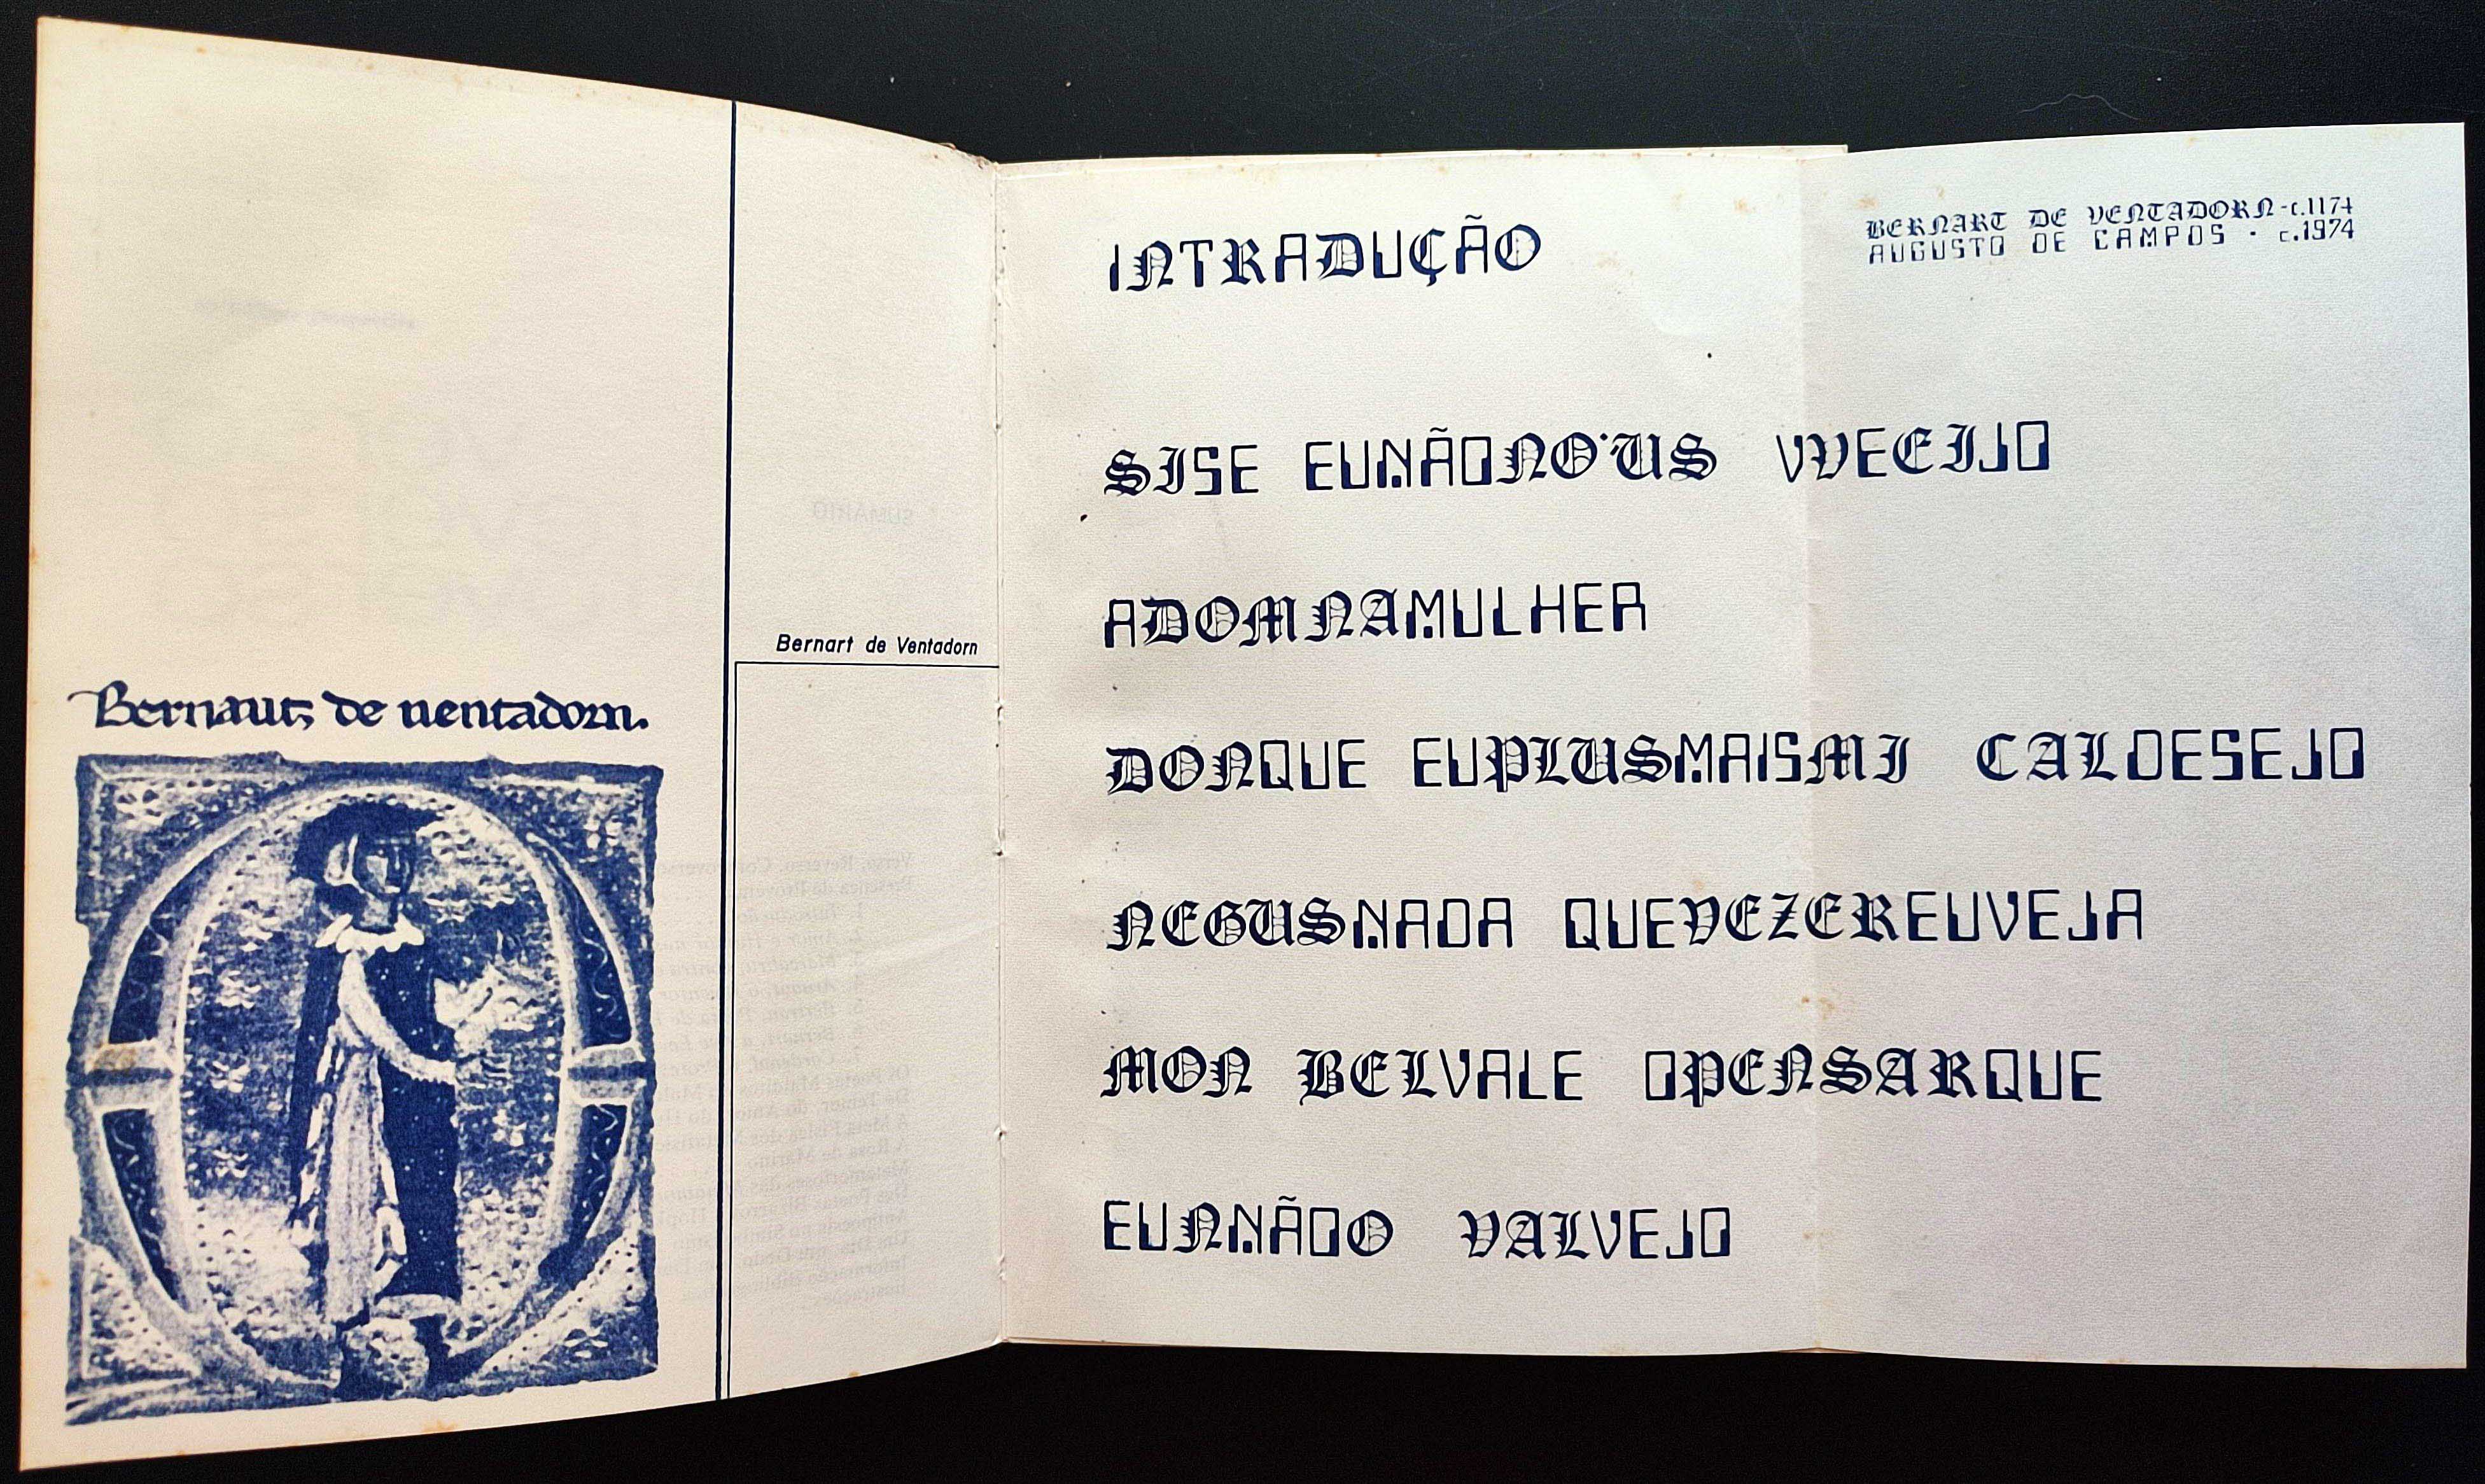 Bernart de Ventadorn
Bernautz de uentadorn.
INTRADUÇÃO
BERNART DE VENTADORN - c.1174
AUGUSTO DE CAMPOS · c.1974
SISE EUNÃONO'US VVEEIJO
ADOMNAMULHER
DONQUE EUPLUSMAISMI CALDESEJO
NEGUSNADA QUEVEZEREUVEJA
MON BELVALE OPENSARQUE
EUNNÃOO VALVEJO